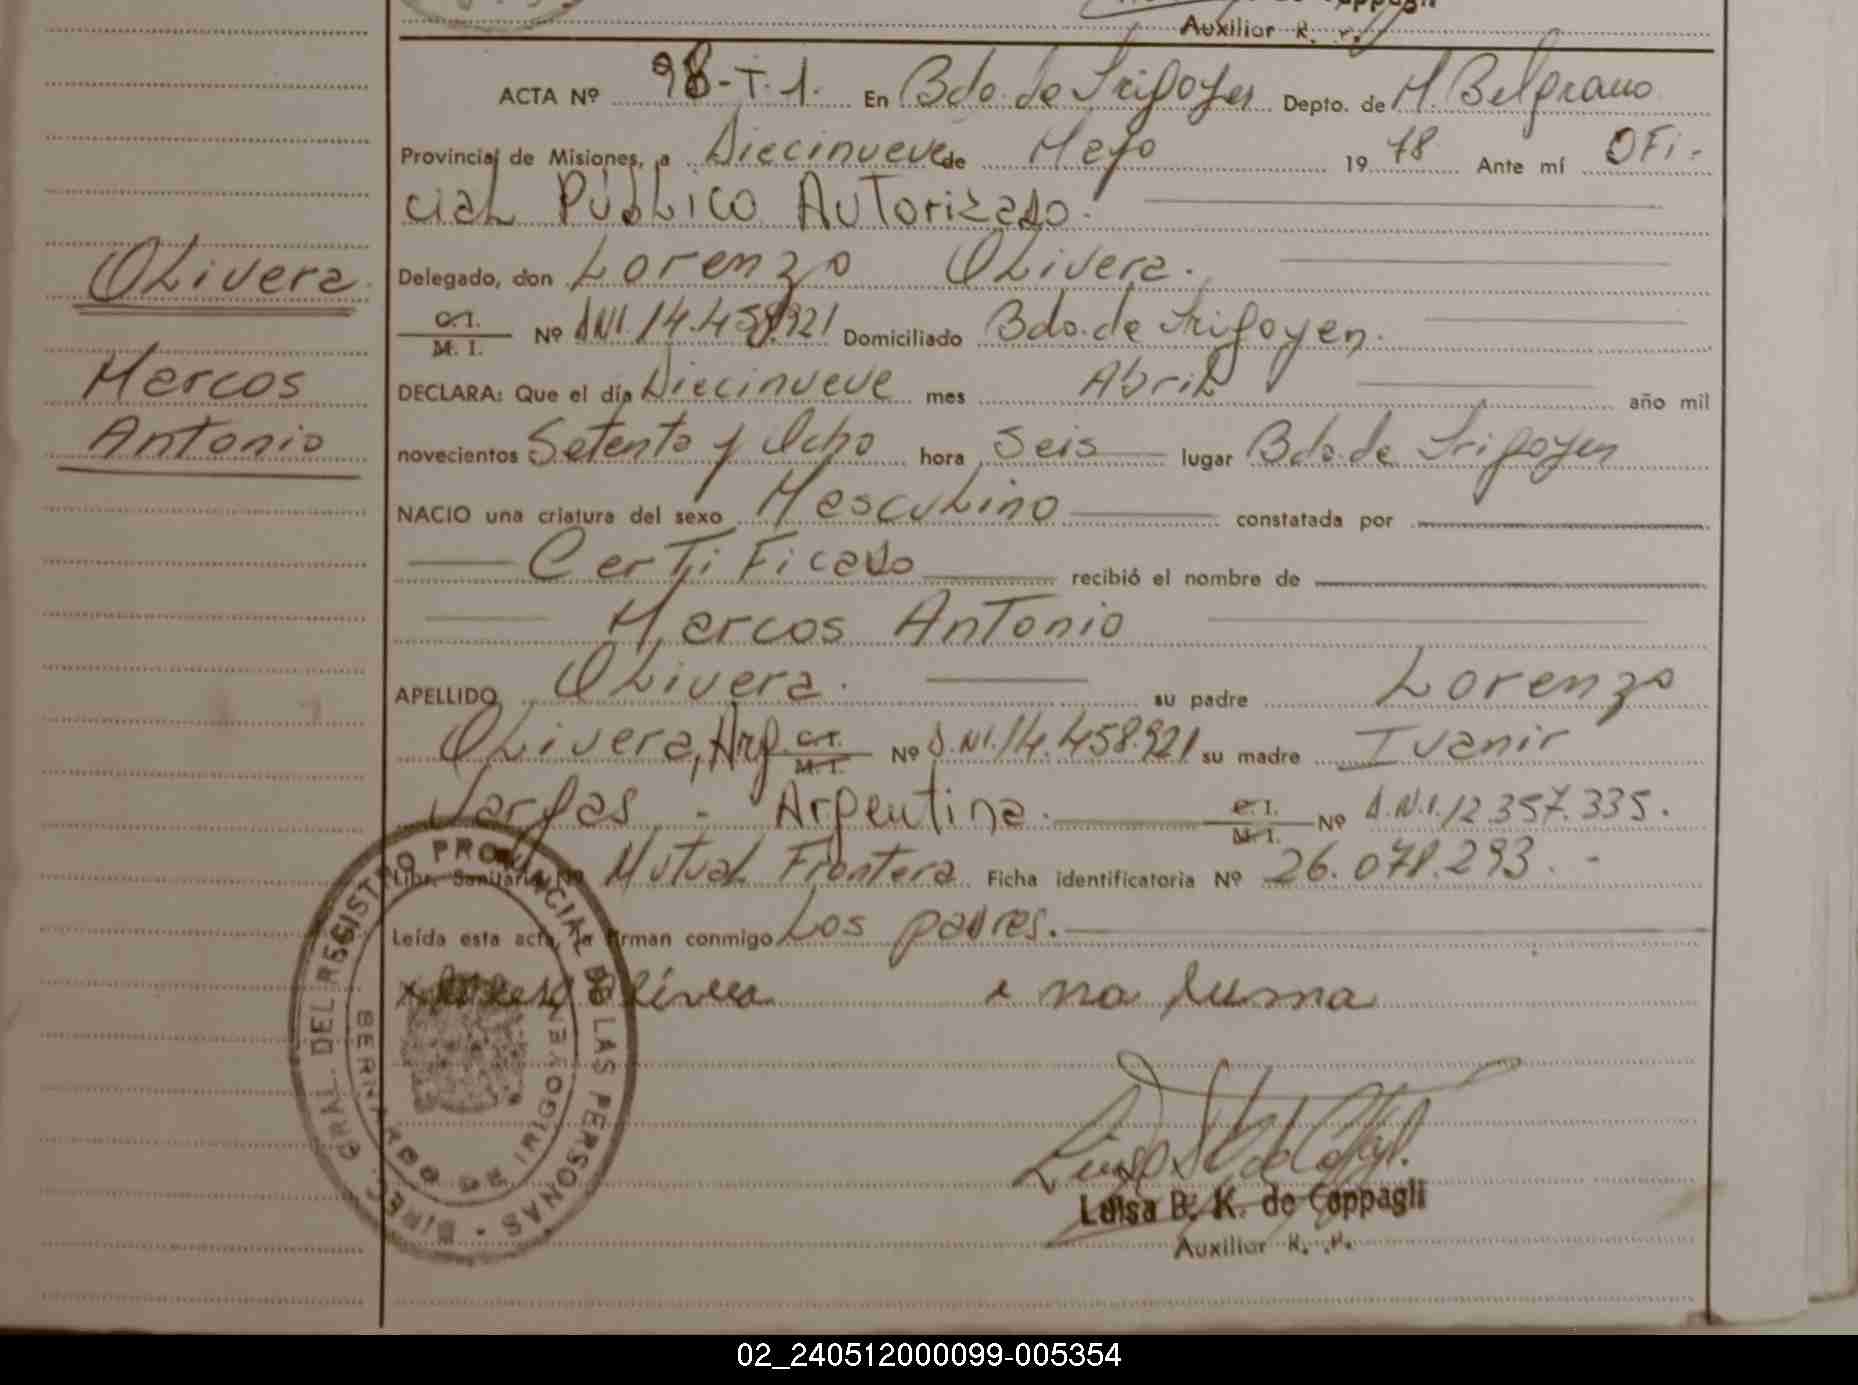 Auxiliar R.
ACTA Nº 98-T.1. En Bdo. de Irigoyen Depto. de M. Belgrano
Provincia de Misiones, a Diecinueve de Mayo 19 78 Ante mí OFi-
ciaL PúbLico Autorizado.
Olivera Delegado, don Lorenzo Olivera.
C.I. M. I. Nº D.N.I. 14.458.921 Domiciliado Bdo. de Irigoyen.
Marcos DECLARA: Que el día Diecinueve mes Abril año mil
Antonio novecientos Setenta y Ocho hora Seis lugar Bdo. de Irigoyen
NACIO una criatura del sexo Masculino constatada por
Certificado recibió el nombre de
Marcos Antonio
APELLIDO Olivera. su padre Lorenzo
Olivera, Arg. C.I. M. I. Nº D.NI. 14.458.921 su madre Ivanir
Vargas - Argentina. C.I. M.I. Nº D.N.I. 12.357.335.
Libr. Sanitaria Nº Mutual Frontera Ficha identificatoria Nº 26.078.293.-
Leída esta acta, la firman conmigo Los padres.
no
DIREC. GRAL. DEL REGISTRO PROVINCIAL DE LAS PERSONAS -
BERNARDO DE IRIGOYEN
Luisa B. K. de Coppagli
Auxiliar R. P.
02_240512000099-005354